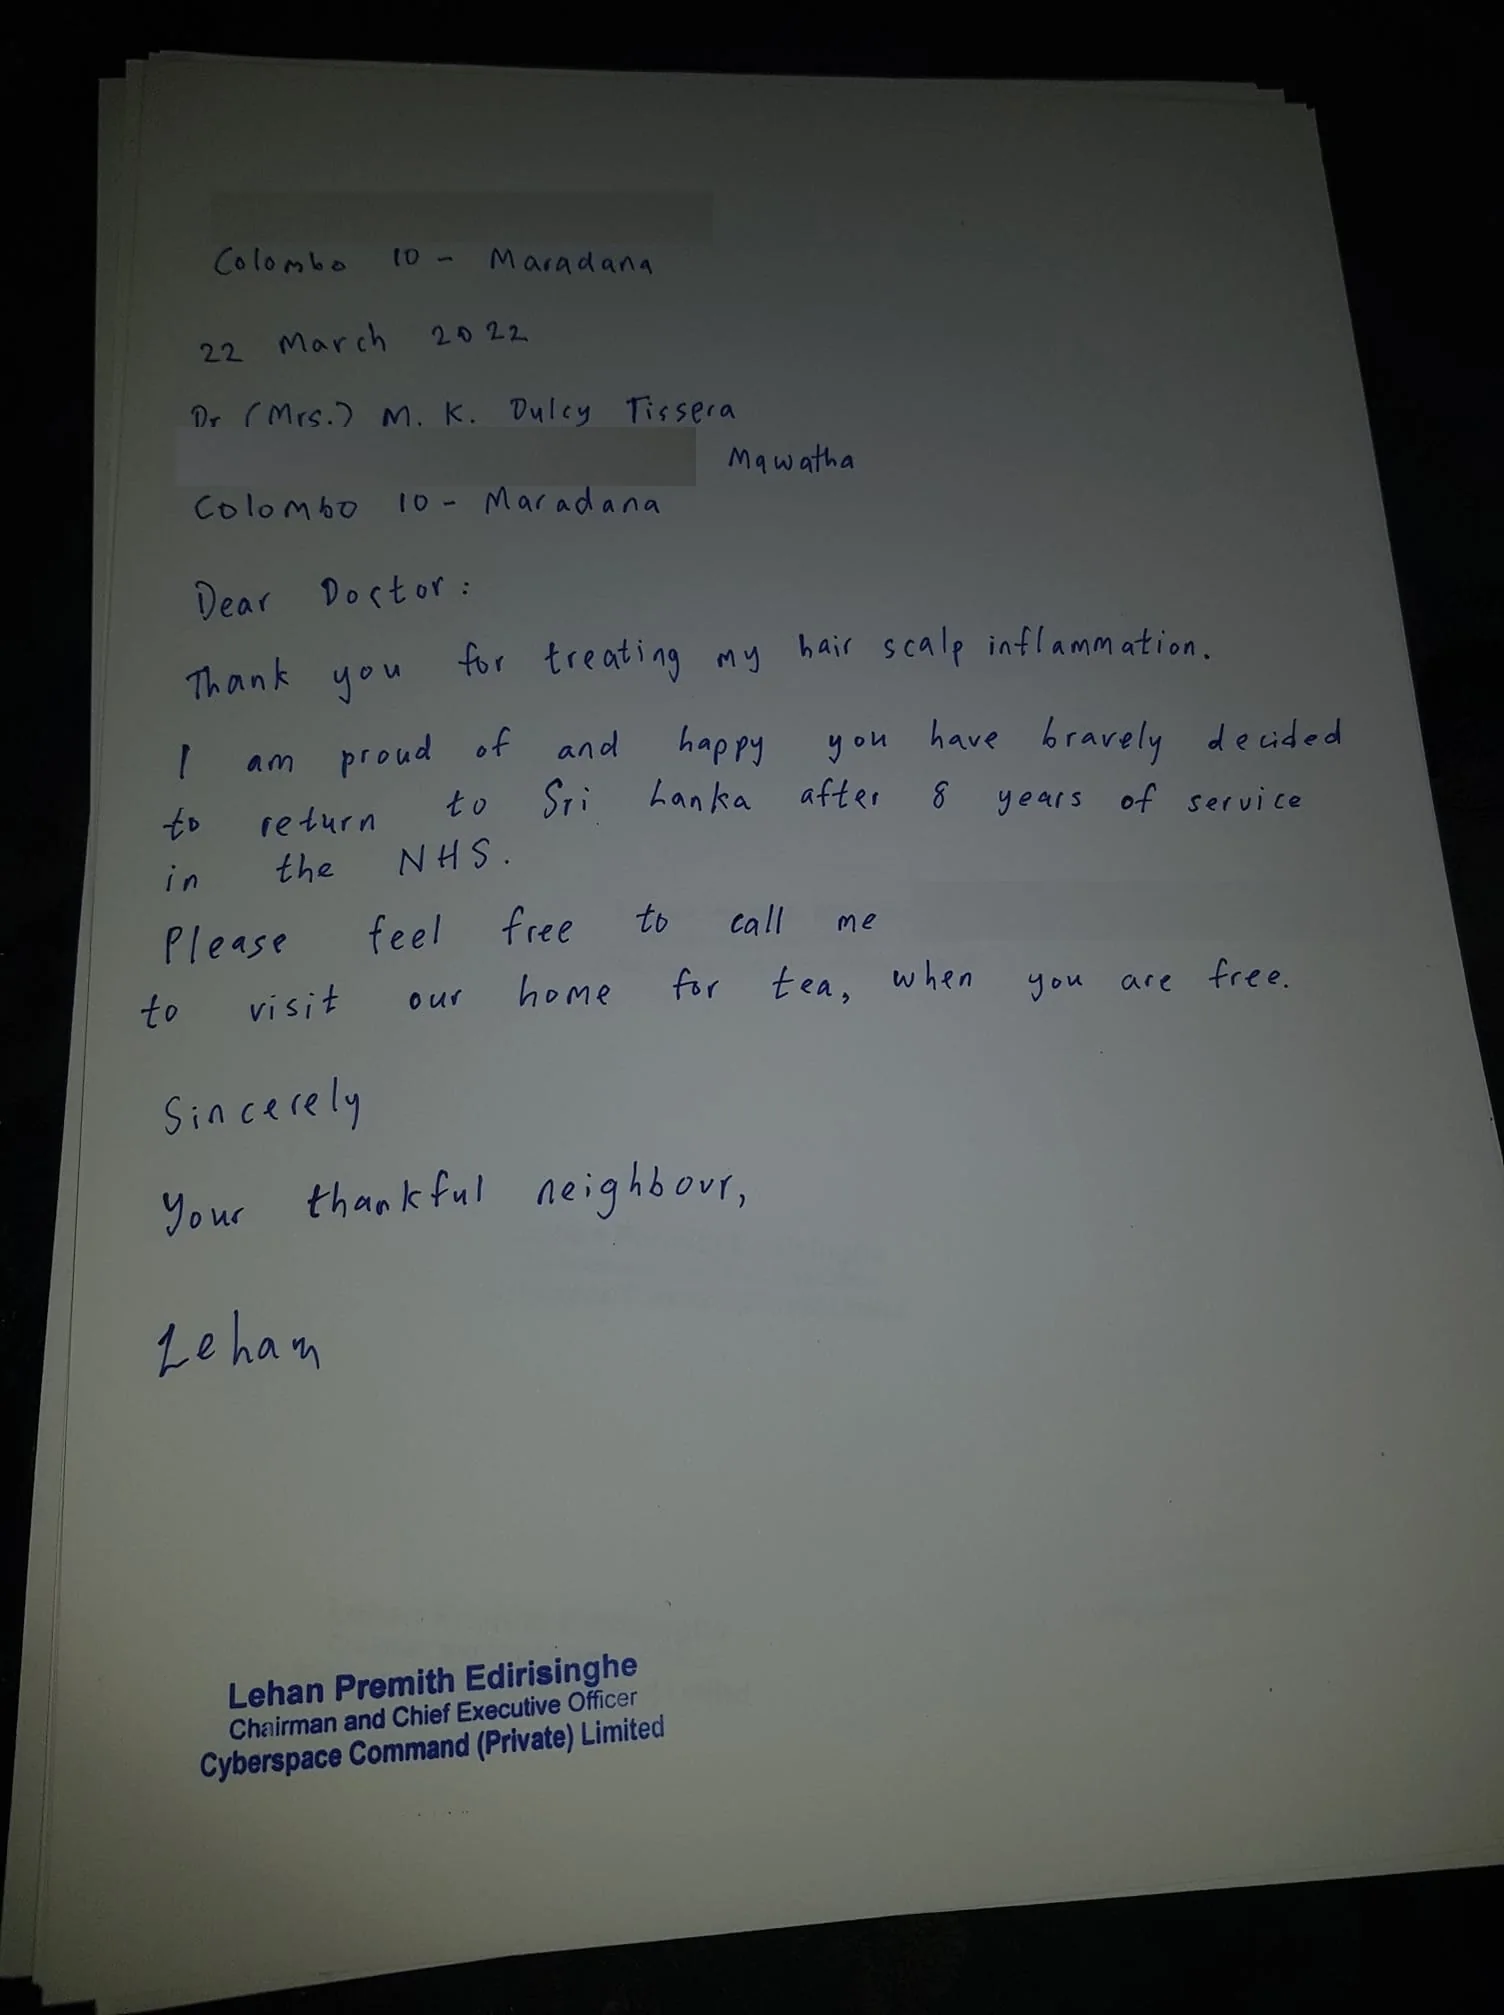 Colombo 10 - Maradana
22 March 2022
Dr (Mrs.) M. K. Dulcy Tissera
Mawatha
Colombo 10 - Maradana
Dear Doctor:
Thank you for treating my hair scalp inflammation.
I am proud of and happy you have bravely decided
to return to Sri Lanka after 8 years of service
in the NHS.
Please feel free to call me
to visit our home for tea, when you are free.
Sincerely
Your thankful neighbour,
Lehan
Lehan Premith Edirisinghe
Chairman and Chief Executive Officer
Cyberspace Command (Private) Limited